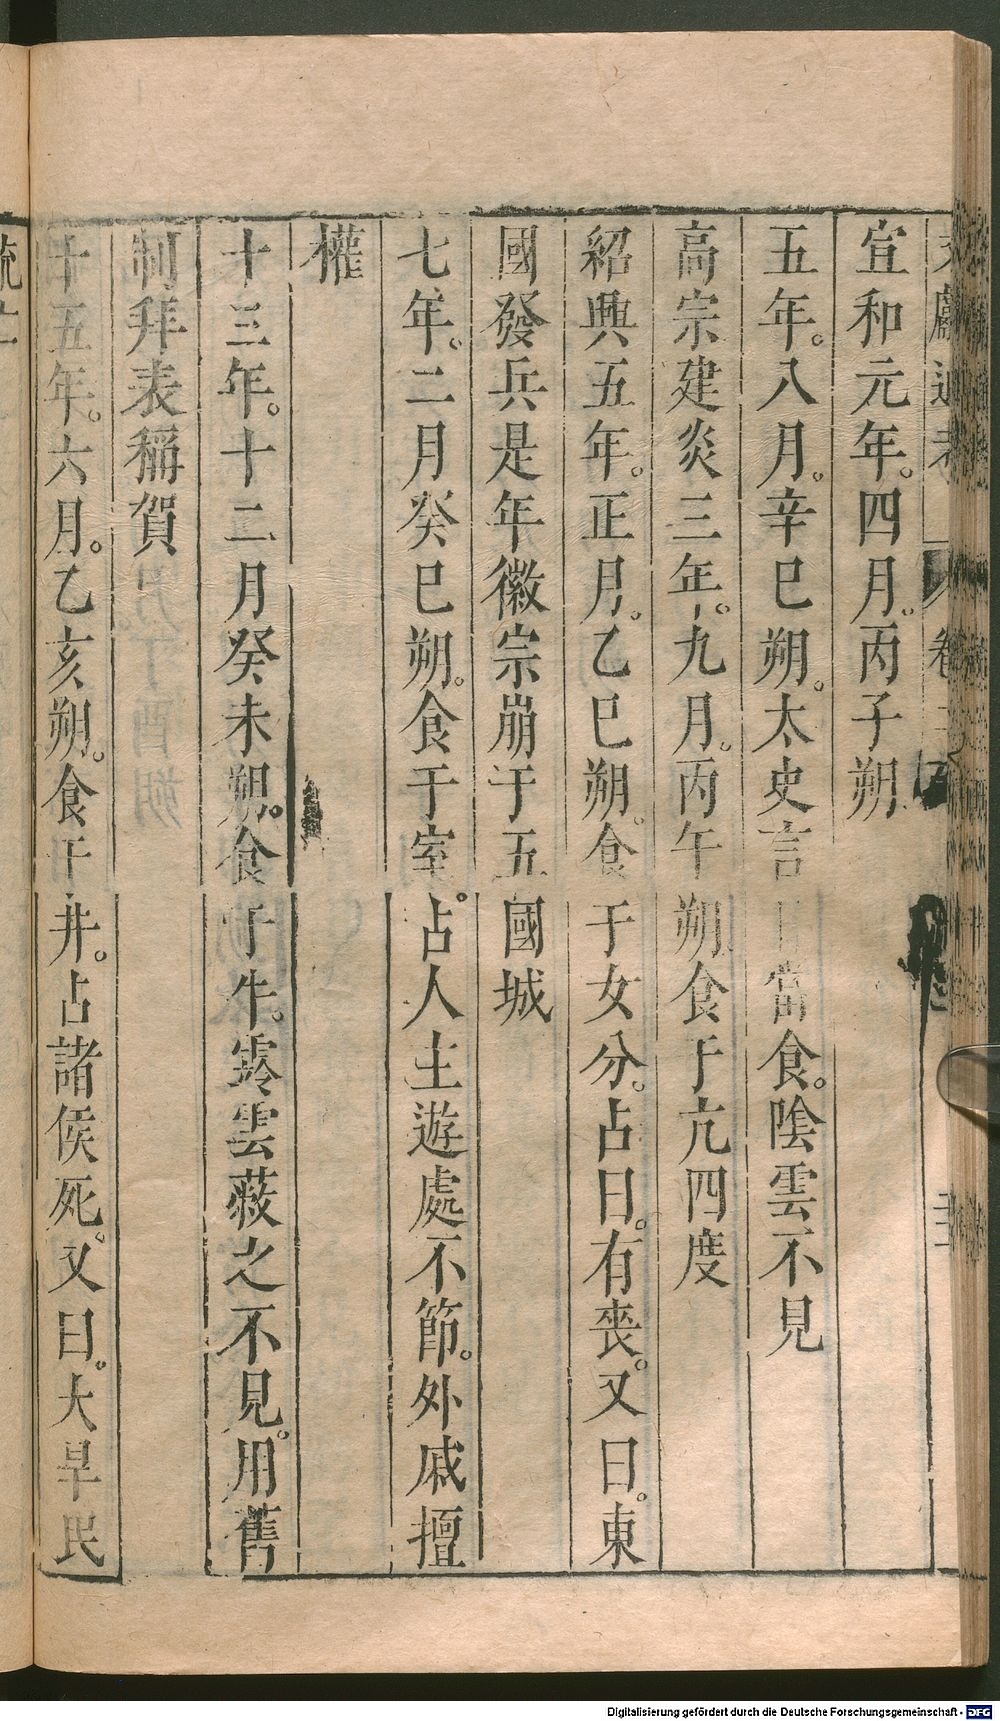 宣和元年。四月。丙子朔
五年。八月。辛巳朔。太史言日當食。陰雲不見
高宗建炎三年。九月。丙午朔食于亢四度
紹興五年。正月。乙巳朔。食于女分。占曰。有喪。又曰。東
國發兵是年徽宗崩于五國城
七年。二月癸巳朔。食于室。占人主遊處不節。外戚擅
權
十三年。十二月癸未朔。食于牛。霒雲蔽之不見。用舊
制拜表稱賀
十五年。六月。乙亥朔。食于井。占諸侯死。又曰。大旱民
Digitalisierung gefördert durch die Deutsche Forschungsgemeinschaft - DFG